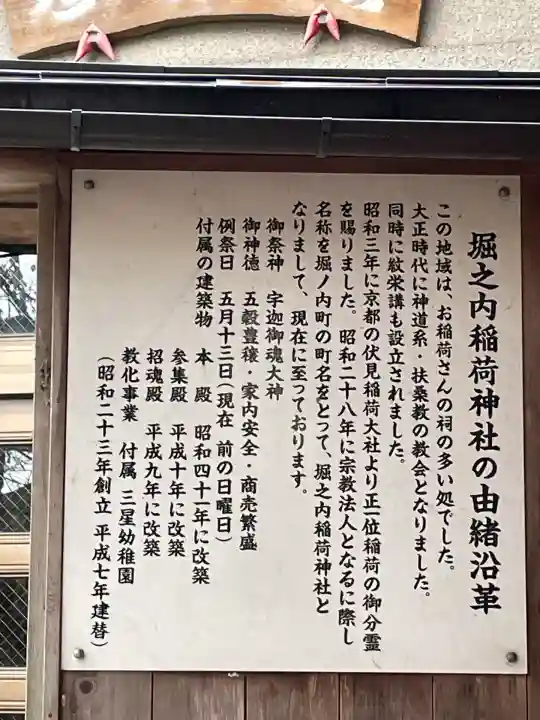 堀之内稲荷神社の由緒沿革
この地域は、お稲荷さんの祠の多い処でした。
大正時代に神道系・扶桑教の教会となりました。
同時に紋栄講も設立されました。
昭和三年に京都の伏見稲荷大社より正一位稲荷の御分霊
を賜りました。昭和二十八年に宗教法人となるに際し
名称を堀ノ内町の町名をとって、堀之内稲荷神社と
なりまして、現在に至っております。
御祭神 宇迦御魂大神
御神徳 五穀豊穣・家内安全・商売繁盛
例祭日 五月十三日(現在 前の日曜日)
付属の建築物 本殿 昭和四十一年に改築
参集殿 平成十年に改築
招魂殿 平成九年に改築
教化事業 付属 三星幼稚園
(昭和二十三年創立 平成七年建替)